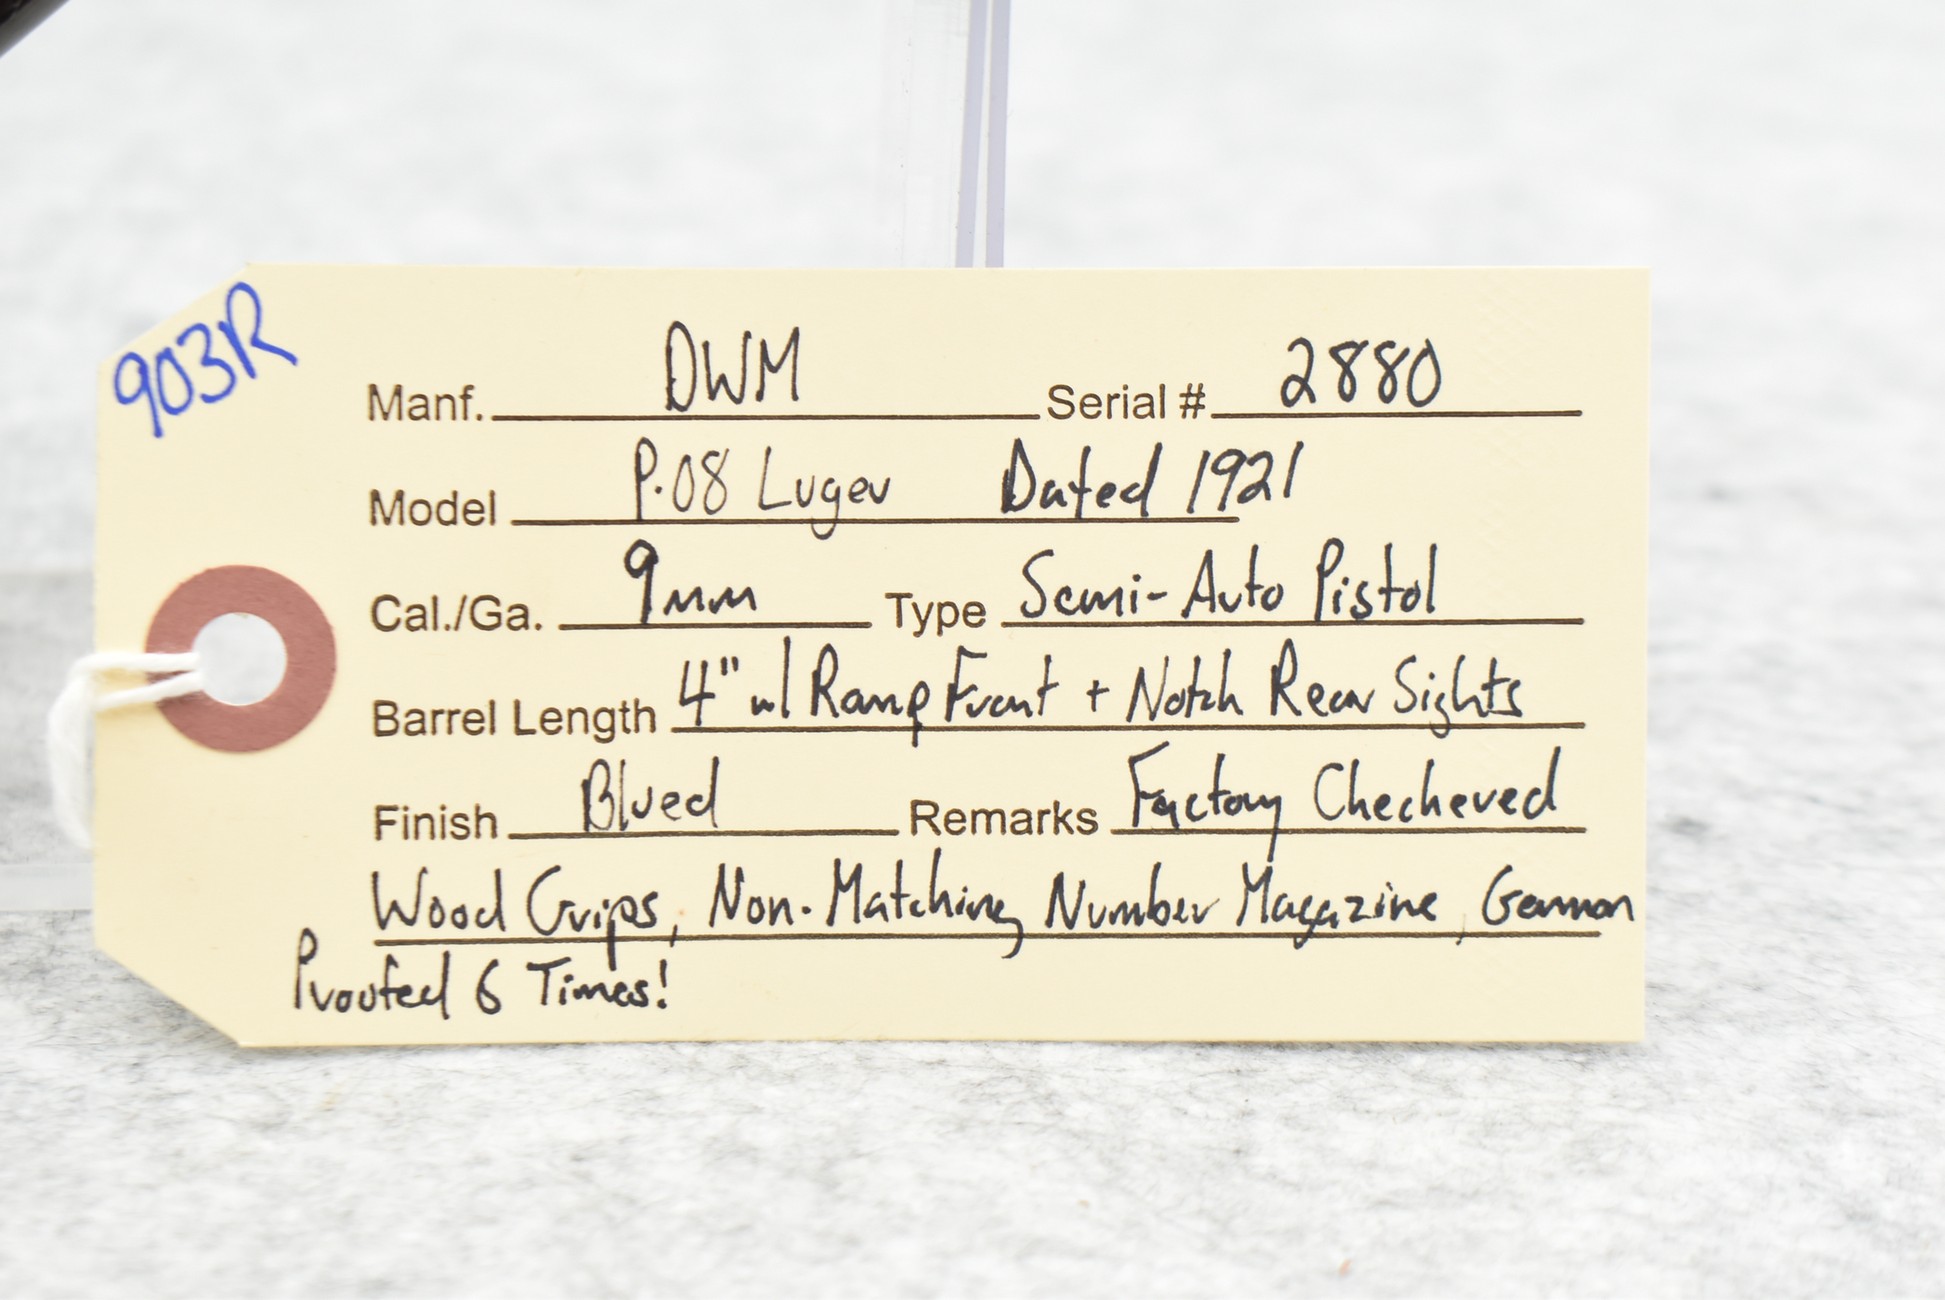 903R
Manf. DWM Serial # 2880
Model P.08 Luger Dated 1921
Cal./Ga. 9mm Type Semi-Auto Pistol
Barrel Length 4" w/ Ramp Front + Notch Rear Sights
Finish Blued Remarks Factory Checkered
Wood Grips, Non-Matching Number Magazine, German
Proofed 6 Times!